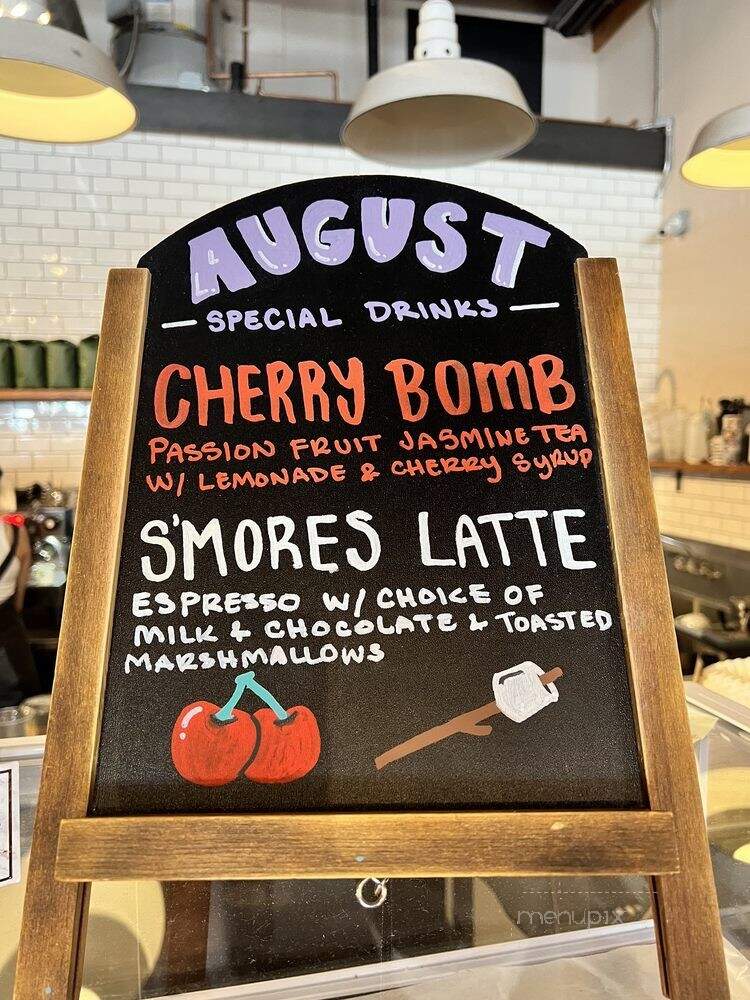 AUGUST
SPECIAL DRINKS
CHERRY BOMB
PASSION FRUIT JASMINE TEA
W/ LEMONADE & CHERRY SYRUP
S'MORES LATTE
ESPRESSO W/ CHOICE OF
MILK & CHOCOLATE & TOASTED
MARSHMALLOWS
menupix